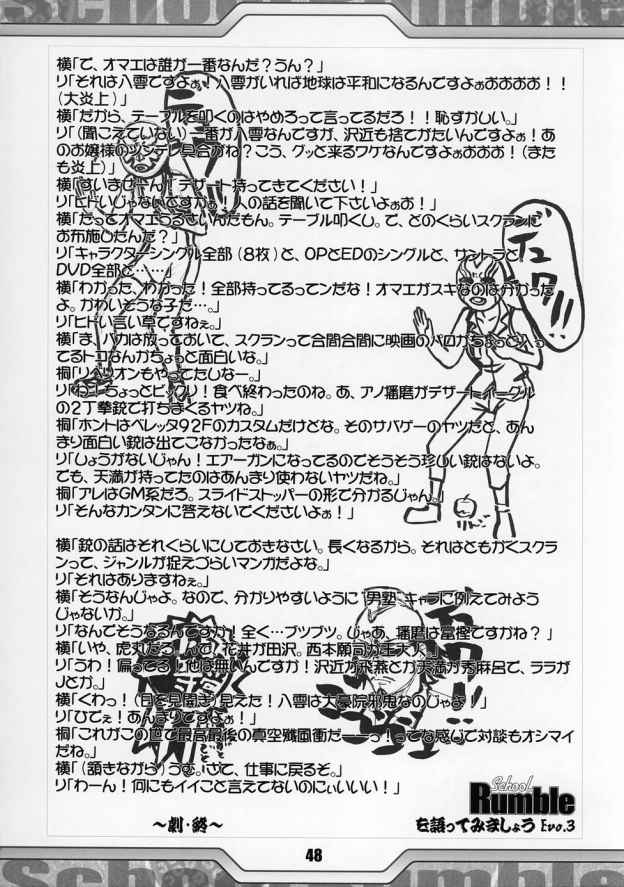 School Rumble
横「で、オマエは誰が一番なんだ？うん？」
リ「それは八雲ですよぉ！八雲がいれば地球は平和になるんですよぉおおおお！！
（大炎上）」
横「だから、テーブルを叩くのはやめろって言ってるだろ！！恥ずかしい。」
リ「（聞こえていない）一番が八雲なんですが、沢近も捨てがたいんですよぉ！あ
のお嬢様のツンデレ具合がね？こう、グッと来るワケなんですよぉおおお！（また
も炎上）」
横「すいませーん！デザート持ってきてください！」
リ「ヒドいじゃないですかぁ！人の話を聞いて下さいよぉお！」
横「だってオマエうるさいんだもん。テーブル叩くし。で、どのくらいスクランに
お布施したんだ？」
リ「キャラクターシングル全部（８枚）と、OPとEDのシングルと、サントラと、
DVD全部と……」
横「わかった、わかった！全部持ってるってンだな！オマエがスキなのは分かった
よ。かわいそうな子だ…。」
リ「ヒドい言い草ですねぇ。」
横「ま、バカは放っておいて、スクランって合間合間に映画のパロがちょっと入っ
てるトコなんかちょっと面白いな。」
桐「リベリオンもやってたしなー。」
リ「わっ！ちょっとビックリ！食べ終わったのね。あ、アノ播磨がデザートイーグル
の２丁拳銃で打ちまくるヤツね。」
桐「ホントはベレッタ９２Fのカスタムだけどな。そのサバゲーのヤツだと、あん
まり面白い銃は出てこなかったなぁ。」
リ「しょうがないじゃん！エアーガンになってるのでそうそう珍しい銃はないよ。
でも、天満が持ってたのはあんまり使わないヤツだね。」
桐「アレはGM系だろ。スライドストッパーの形で分かるじゃん。」
リ「そんなカンタンに答えないでくださいよぉ！」
横「銃の話はそれくらいにしておきなさい。長くなるから。それはともかくスクラ
ンって、ジャンルが捉えづらいマンガだよな。」
リ「それはありますねぇ。」
横「そうなんじゃよ。なので、分かりやすいように『男塾』キャラに例えてみよう
じゃないか。」
リ「なんでそうなるんですか！全く…ブツブツ。じゃあ、播磨は富樫ですかね？」
横「いや、虎丸だろ。んで、花井が田沢。西本願司が王大人。」
リ「うわ！偏ってるし他は無いんですか！沢近が飛燕とか天満が秀麻呂で、ララが
Jとか。」
横「くわっ！（目を見開き）見えた！八雲は大豪院邪鬼なのじゃよ！」
リ「ひでぇ！あんまりですよぉ！」
桐「これがこの世で最高最後の真空殲風衝だーーっ！ってな感じで対談もオシマイ
だね。」
横「（頷きながら）うむ。さて、仕事に戻るぞ。」
リ「わーん！何にもイイこと言えてないのにぃいいい！」
～劇・終～
School
Rumble
を語ってみましょう Evo.3
48
School Rumble